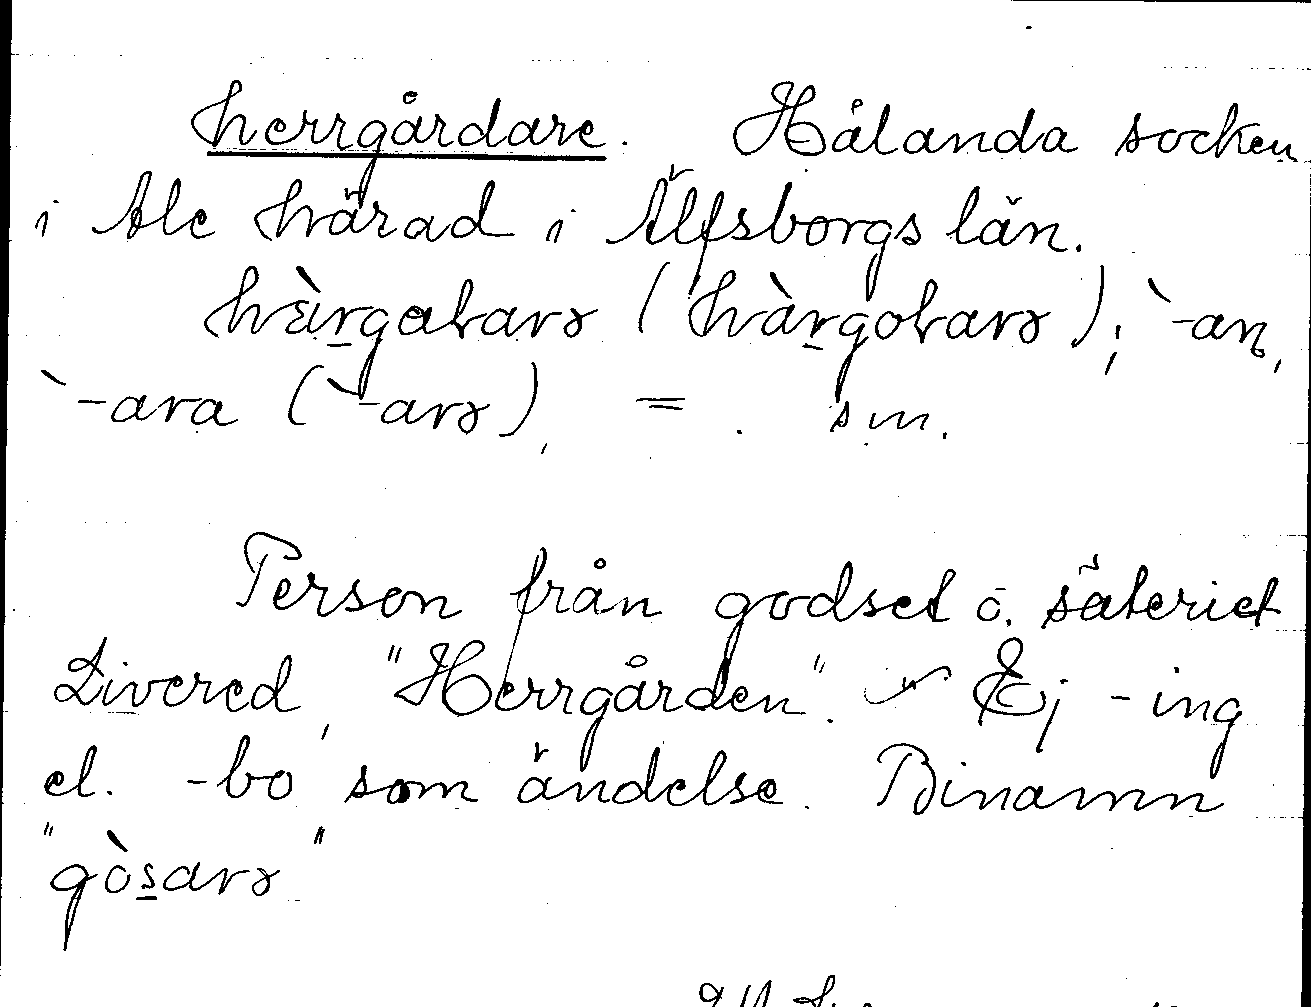 herrgårdare. Hålanda socken
i Ale härad i Älfsborgs län.
hä̀rgaƚarɘ (hàrgoƚarɘ); `-an,
`-ara (`-arɘ), = . sm.
Person från godset o. säteriet
Livered, "Herrgården". Ej -ing
el. -bo som ändelse. Binamn
"gòsarɘ"